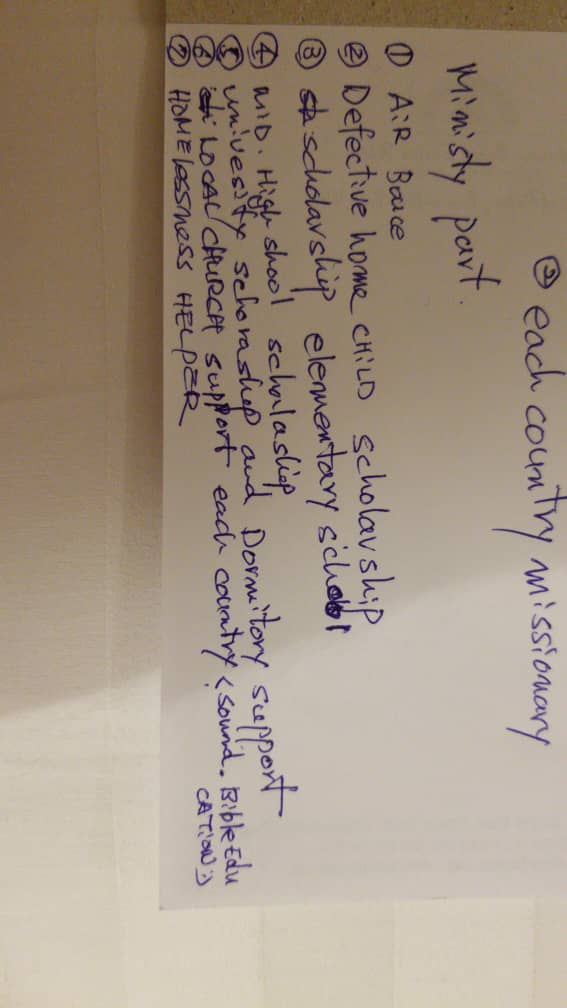 ② each country missionary
Ministy part.
① AiR Bouce
② Defective home CHiLD scholarship
③ scholarship elementary school
④ MiD. High shool scholaship
⑤ univesity schorashop and Dormitory support
⑥ LOCAL CHURCH support each country <sound. Bible Edu
CATION:>
⑦ HOMElessness HELPER